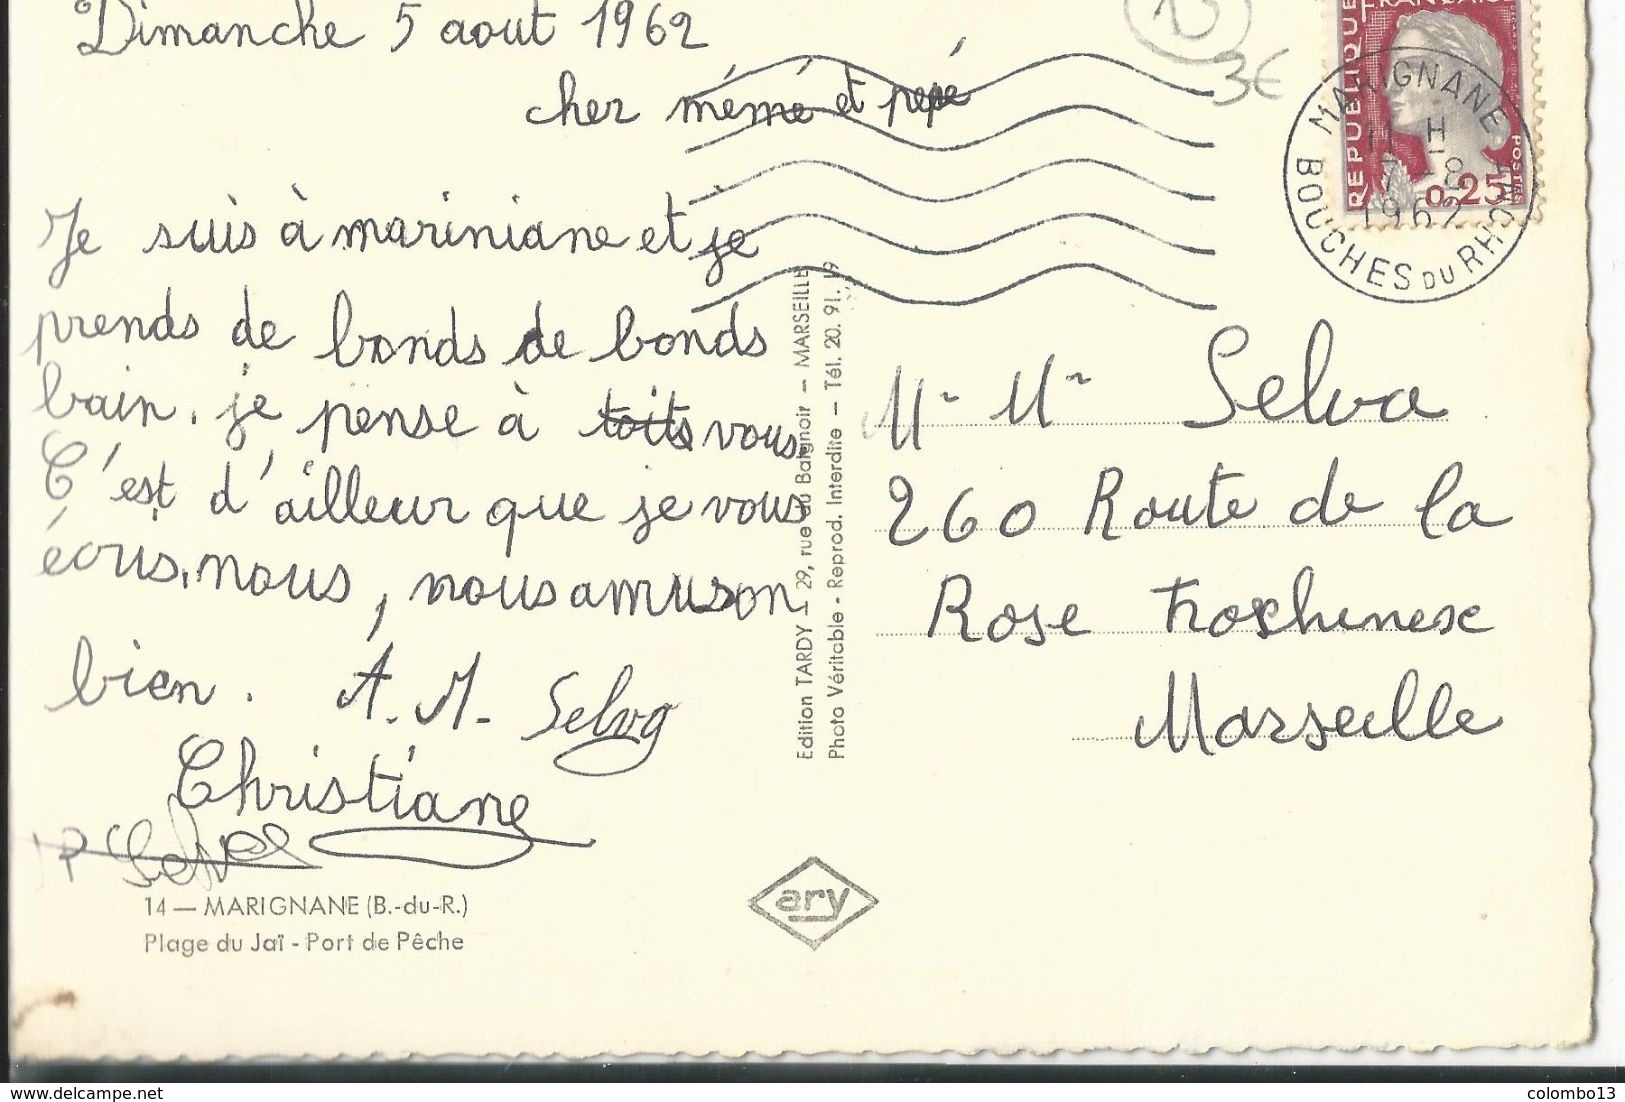 Dimanche 5 aout 1962
cher mémé et pepé
Je suis à mariniane et je
prends de bonds de bonds
bain. je pense à vous.
C'est d'ailleur que je vous
écris. nous, nous amuson
bien. A. M. Selva
Christiane
Selva
14 — MARIGNANE (B.-du-R.)
Plage du Jaï - Port de Pêche
Edition TARDY — 29, rue du Baignoir — MARSEILLE
Photo Véritable - Reprod. Interdite — Tél. 20. 91. 19
ary
13
3€
REPUBLIQUE FRANÇAISE
POSTES
0,25
MARIGNANE
11 H
7 - 8
1962
BOUCHES DU RHONE
Mr Mr Selva
260 Route de la
Rose
Marseille
www.delcampe.net
colombo13